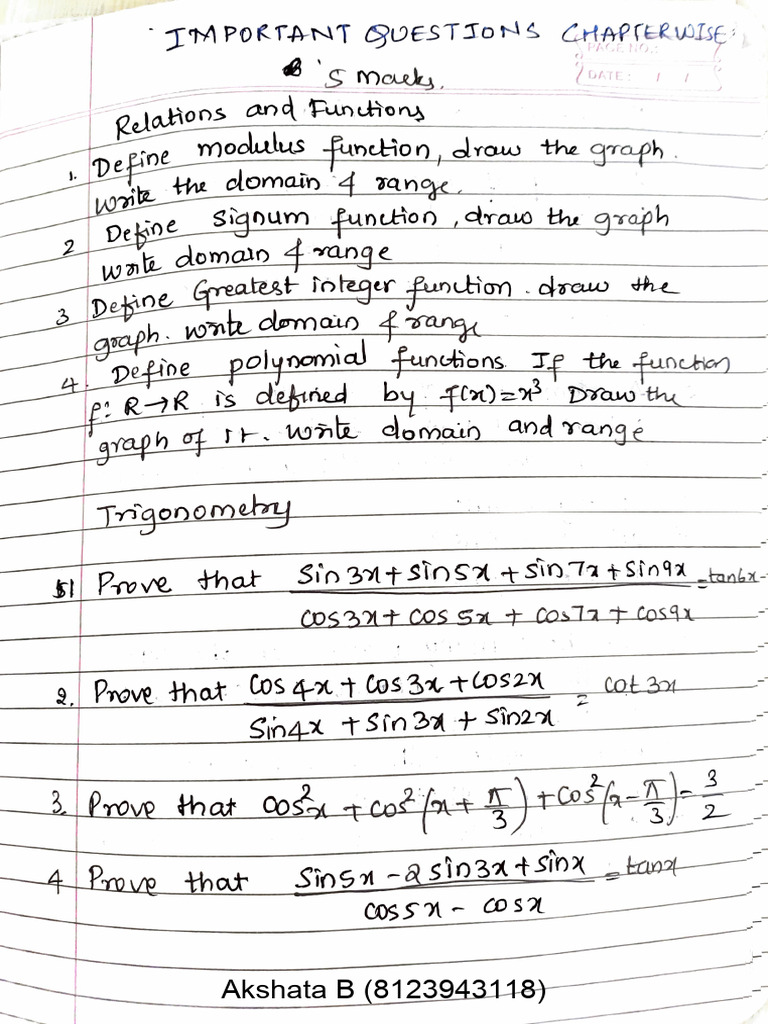 IMPORTANT QUESTIONS CHAPTERWISE:
PAGE NO.:
5 marks.
DATE: / /
Relations and Functions
1. Define modulus function, draw the graph.
write the domain & range.
2 Define signum function, draw the graph
write domain & range
3 Define Greatest integer function. draw the
graph. write domain & range
4. Define polynomial functions If the function
f: R→R is defined by f(x)=x³ Draw the
graph of it. write domain and range
Trigonometry
1 Prove that sin3x+sin5x+sin7x+sin9x =tan6x
cos3x+cos5x+cos7x+cos9x
2. Prove that cos4x+cos3x+cos2x = cot3x
sin4x+sin3x+sin2x
3. Prove that cos²x+cos²(x+π/3)+cos²(x-π/3)=3/2
4 Prove that sin5x-2sin3x+sinx =tanx
cos5x-cosx
Akshata B (8123943118)